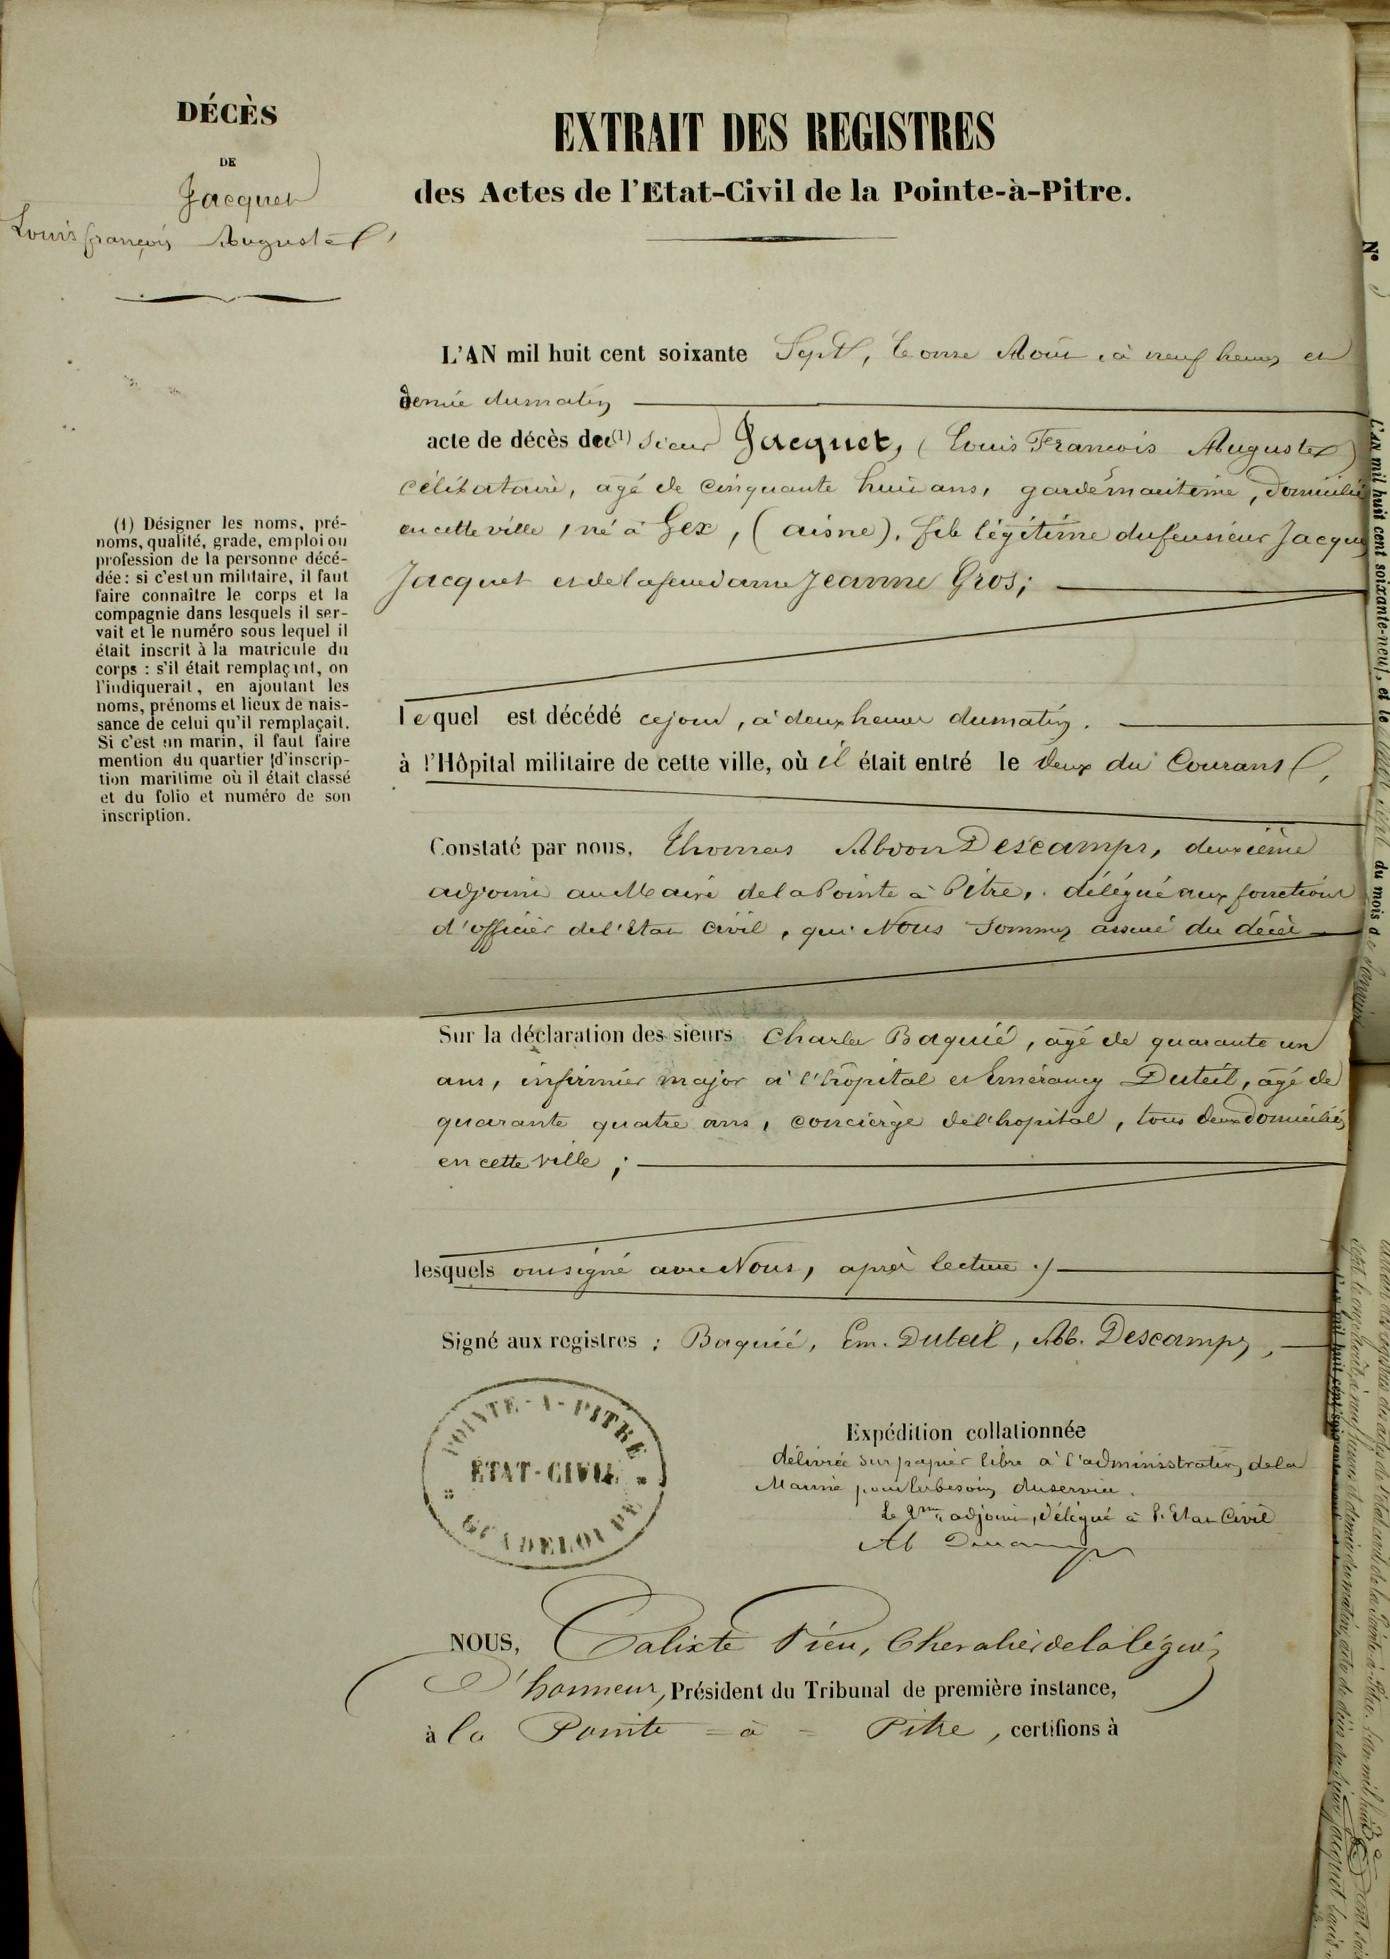 DÉCÈS
DE
Jacquet
Louis françois Auguste
EXTRAIT DES REGISTRES
des Actes de l'Etat-Civil de la Pointe-à-Pitre.
L'AN mil huit cent soixante Sept, le onze Août, à neuf heures et
demie du matin
acte de décès de (1) Sieur Jacquet, (Louis François Auguste)
célibataire, agé de cinquante huit ans, garde maritime, domicilié
en cette ville, né à Gex, (aisne), fils légitime du feu sieur Jacques
Jacquet et de la feue dame Jeanne Gros;
(1) Désigner les noms, pré-
noms, qualité, grade, emploi ou
profession de la personne décé-
dée: si c'est un militaire, il faut
faire connaître le corps et la
compagnie dans lesquels il ser-
vait et le numéro sous lequel il
était inscrit à la matricule du
corps : s'il était remplaçant, on
l'indiquerait, en ajoutant les
noms, prénoms et lieux de nais-
sance de celui qu'il remplaçait.
Si c'est un marin, il faut faire
mention du quartier d'inscrip-
tion maritime où il était classé
et du folio et numéro de son
inscription.
lequel est décédé ce jour, à deux heures du matin.
à l'Hôpital militaire de cette ville, où il était entré le deux du Courant,
Constaté par nous, Thomas Abdon Descamps, deuxième
adjoint au Maire de la Pointe à Pitre, délégué aux fonctions
d'officier de l'Etat civil, qui Nous sommes assuré du décès
Sur la déclaration des sieurs Charles Baquié, âgé de quarante un
ans, infirmier major à l'hôpital et Emérancy Duteil, âgé de
quarante quatre ans, concierge de l'hopital, tous deux domiciliés
en cette ville;
lesquels ont signé avec Nous, après lecture ./
Signé aux registres : Baquié, Em. Duteil, Ab. Descamps,
POINTE-A-PITRE
ÉTAT-CIVIL
GUADELOUPE
Expédition collationnée
délivrée sur papier libre à l'administration de la
Marine pour les besoins du service.
Le 2me adjoint, délégué à l'Etat Civil
Ab Descamps
NOUS, Calixte Pieu, Chevalier de la légion
d'honneur, Président du Tribunal de première instance,
à la Pointe = à = Pitre, certifions à
N°
L'AN mil huit cent soixante-neuf, et le
du mois de Janvier